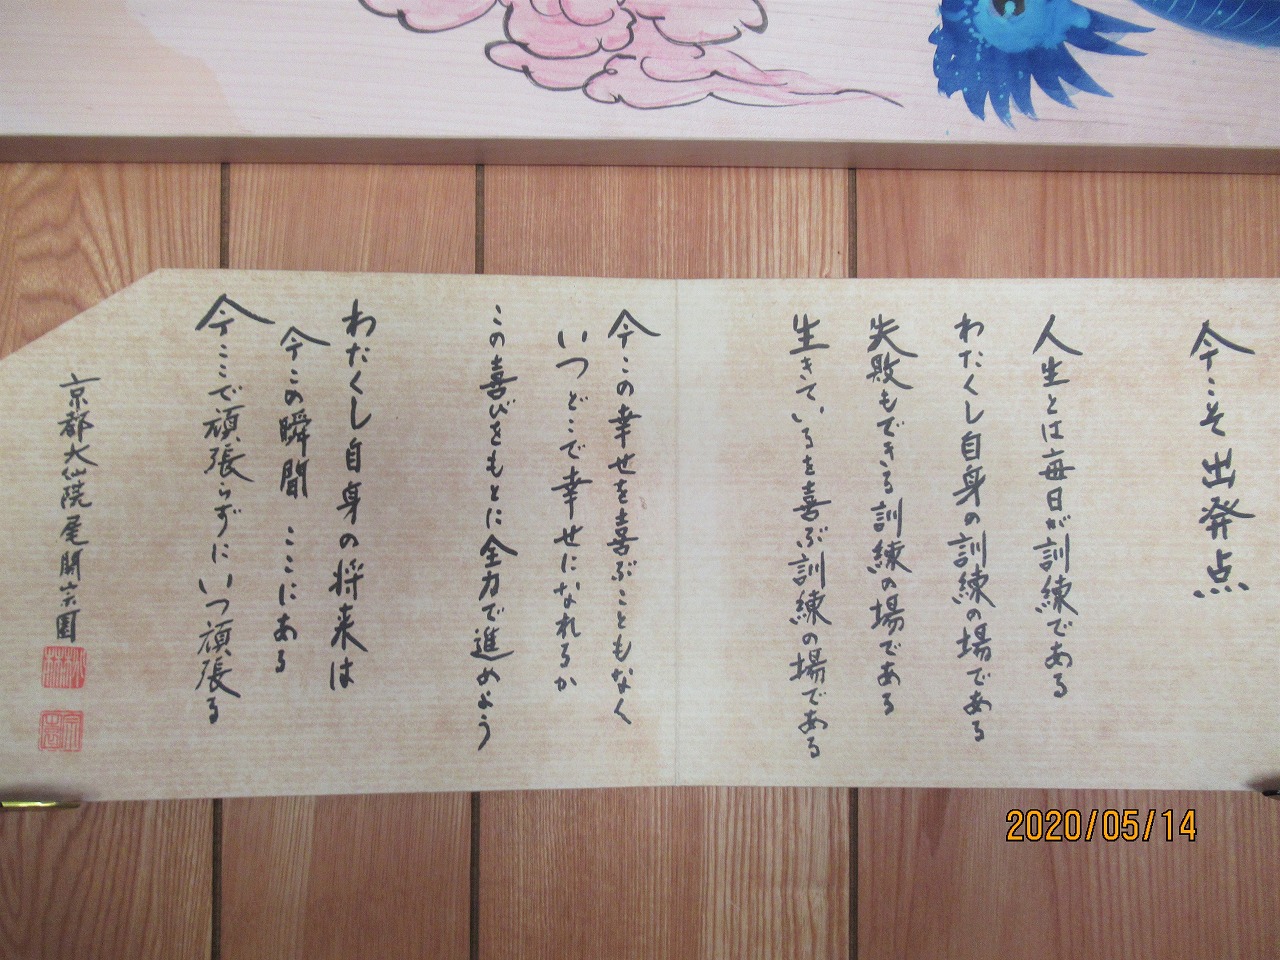 今こそ出発点
人生とは毎日が訓練である
わたくし自身の訓練の場である
失敗もできる訓練の場である
生きているを喜ぶ訓練の場である
今この幸せを喜ぶこともなく
いつどこで幸せになれるか
この喜びをもとに全力で進めよう
わたくし自身の将来は
今この瞬間 ここにある
今ここで頑張らずにいつ頑張る
京都大仙院尾関宗園
2020/05/14